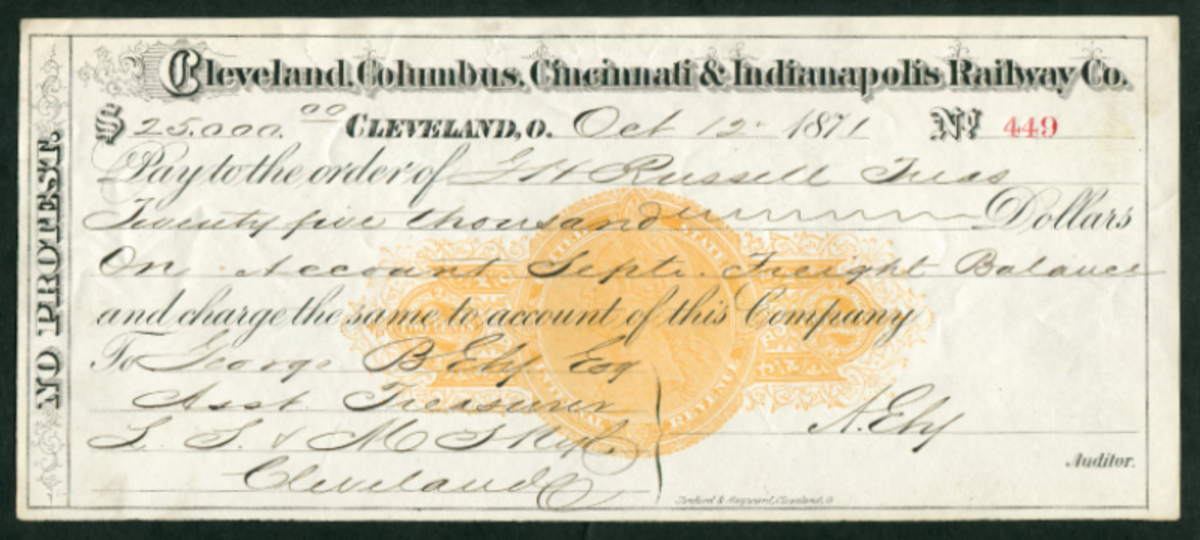 Cleveland, Columbus, Cincinnati & Indianapolis Railway Co.
$ 25.000.00 CLEVELAND, O. Oct 12 1871 No. 449
Pay to the order of G H Russell Treas
Twenty five thousand Dollars
On Account Sept. Freight Balance
and charge the same to account of this Company
To George B Ely Esq
Asst. Treasurer
L. S. & M S Ry
Cleveland O
A. Ely
Auditor.
Sanford & Hayward, Cleveland, O.
NO PROTEST.
UNITED STATES
INTERNAL REVENUE